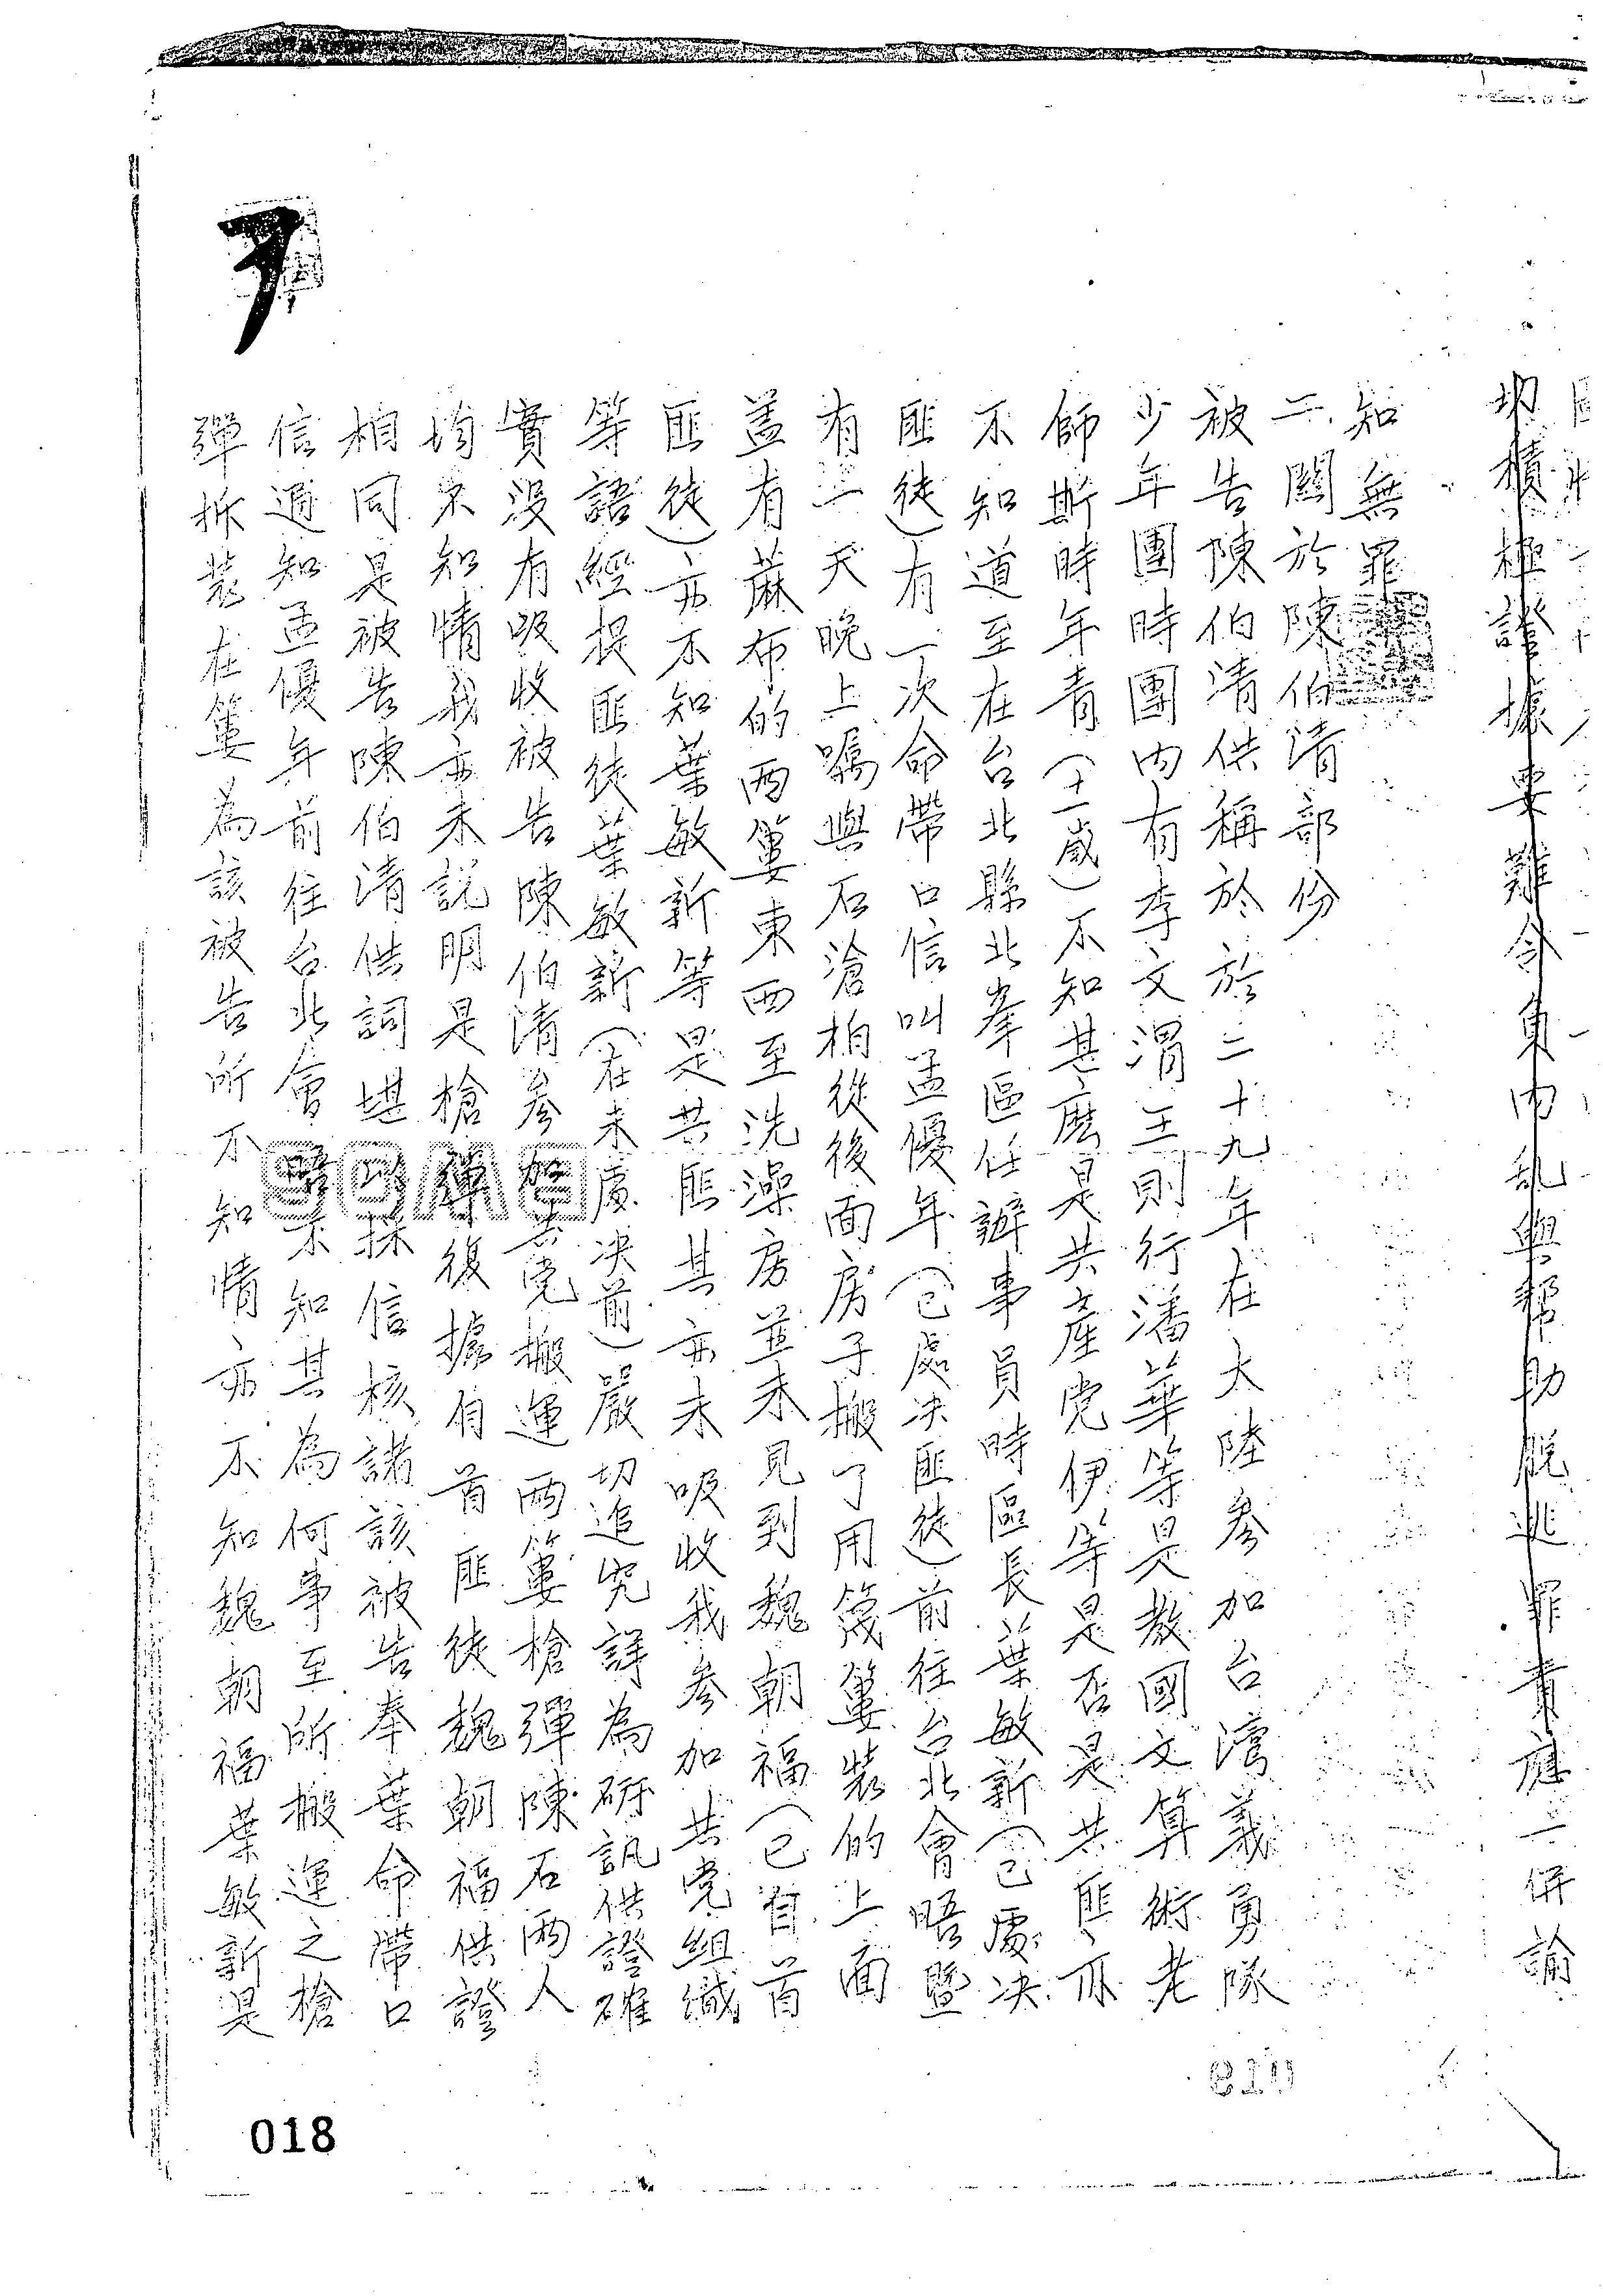 切積極證據要難令負內亂與幫助脫逃罪責應一併諭
知無罪
二、關於陳伯清部份
被告陳伯清供稱於於二十九年在大陸參加台灣義勇隊
少年團時團內有李文渭王則行潘華等是教國文算術老
師斯時年青（十一歲）不知甚麽是共產党伊等是否是共匪、亦
不知道至在台北縣北峯區任辦事員時區長葉敏新（已處決
匪徒）有一次命帶口信叫孟優年（已處决匪徒）前往台北會晤暨
有一天晚上囑與石滄柏從後面房子搬了用篾簍裝的上面
盖有蔴布的兩簍東西至洗澡房並未見到魏朝福（已自首
匪徒）亦不知葉敏新等是共匪其亦未吸收我參加共党組織
等語經提匪徒葉敏新（在未處决前）嚴切追究詳為研訊供證確
實没有吸收被告陳伯清參加共党搬運兩簍槍彈陳石兩人
均不知情我亦未說明是槍彈復據自首匪徒魏朝福供證
相同是被告陳伯清供詞堪以採信核諸該被告奉葉命帶口
信通知孟優年前往台北會晤不知其為何事至所搬運之槍
彈拆裝在簍為該被告所不知情亦不知魏朝福葉敏新是
018